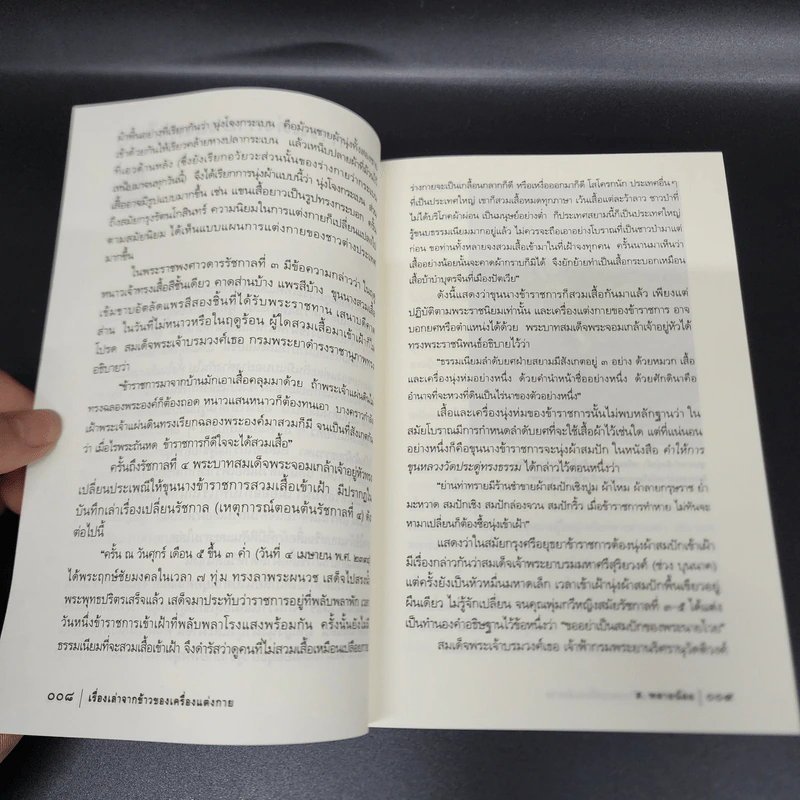 ผ้าพื้นอย่างที่เรียกกันว่า นุ่งโจงกระเบน คือม้วนชายผ้านุ่งทั้งสอง
เข้าด้วยกันให้เรียวคล้ายหางปลากระเบน แล้วเหน็บปลายผ้าที่ม้วน
ที่เอวด้านหลัง (ซึ่งยังเรียกอวัยวะส่วนนั้นของร่างกายว่ากระเบน
เหน็บมาจนทุกวันนี้) จึงได้เรียกการนุ่งผ้าแบบนี้ว่า นุ่งโจงกระเบน ส่วน
เสื้ออาจมีรูปแบบมากขึ้น เช่น แขนเสื้อยาวเป็นรูปทรงกระบอก ครั้น
ถึงสมัยกรุงรัตนโกสินทร์ ความนิยมในการแต่งกายก็เปลี่ยนแปลง
ตามสมัยนิยม ได้เห็นแบบแผนการแต่งกายของชาวต่างประเทศ
มากขึ้น
ในพระราชพงศาวดารรัชกาลที่ ๓ มีข้อความกล่าวว่า ในฤดู
หนาวเจ้าทรงเสื้อสีชั้นเดียว คาดส่านบ้าง แพรสีบ้าง ขุนนางสวมเสื้อ
เข้มขาบอัตลัดแพรสีสองชั้นที่ได้รับพระราชทาน เสนาบดีคาด
ส่าน ในวันที่ไม่หนาวหรือในฤดูร้อน ผู้ใดสวมเสื้อมาเข้าเฝ้าก็ไม่
โปรด สมเด็จพระเจ้าบรมวงศ์เธอ กรมพระยาดำรงราชานุภาพทรง
อธิบายว่า
“ข้าราชการมาจากบ้านมักเอาเสื้อคลุมมาด้วย ถ้าพระเจ้าแผ่นดินไม่
ทรงฉลองพระองค์ก็ต้องถอด หนาวแสนหนาวก็ต้องทนเอา บางคราวกำลัง
เฝ้าพระเจ้าแผ่นดินทรงเรียกฉลองพระองค์มาสวมก็มี จนเป็นที่สังเกตกัน
ว่า เมื่อไรพระถันหด ข้าราชการก็ดีใจจะได้สวมเสื้อ”
ครั้นถึงรัชกาลที่ ๔ พระบาทสมเด็จพระจอมเกล้าเจ้าอยู่หัวทรง
เปลี่ยนประเพณีให้ขุนนางข้าราชการสวมเสื้อเข้าเฝ้า มีปรากฏใน
บันทึกเล่าเรื่องเปลี่ยนรัชกาล (เหตุการณ์ตอนต้นรัชกาลที่ ๔) ดัง
ต่อไปนี้
“ครั้น ณ วันศุกร์ เดือน ๕ ขึ้น ๓ ค่ำ (วันที่ ๔ เมษายน พ.ศ.
ได้พระฤกษ์ชัยมงคลในเวลา ๗ ทุ่ม ทรงลาพระผนวช เสด็จไปสรง
พระพุทธปริตรเสร็จแล้ว เสด็จมาประทับว่าราชการอยู่ที่พลับพลาพัก
วันหนึ่งข้าราชการเข้าเฝ้าที่พลับพลาโรงแสงพร้อมกัน ครั้งนั้นยังไม่มี
ธรรมเนียมที่จะสวมเสื้อเข้าเฝ้า จึงดำรัสว่าดูคนที่ไม่สวมเสื้อเหมือนเปลือยกาย
๐๐๘ | เรื่องเล่าจากข้าวของเครื่องแต่งกาย
ร่างกายจะเป็นเกลื้อนกลากก็ดี หรือเหงื่ออกมาก็ดี โสโครกนัก ประเทศอื่นๆ
ที่เป็นประเทศใหญ่ เขาก็สวมเสื้อหมดทุกภาษา เว้นเสื้อแต่ละว้าลาว ชาวป่าที่
ไม่ได้บริโภคผ้าผ่อน เป็นมนุษย์อย่างต่ำ ก็ประเทศสยามนี้ก็เป็นประเทศใหญ่
รู้ขนบธรรมเนียมมากอยู่แล้ว ไม่ควรจะถือเอาอย่างโบราณที่เป็นชาวป่ามาแต่
ก่อน ขอท่านทั้งหลายจงสวมเสื้อเข้ามาในที่เฝ้าจงทุกคน ครั้นนานมาเห็นว่า
เสื้ออย่างน้อยนั้นจะคาดผ้ากราบก็มิได้ จึงยักย้ายทำเป็นเสื้อกระบอกเหมือน
เสื้อบ้าบ๋าบุตรจีนที่เมืองปัตเวีย”
ดังนี้แสดงว่าขุนนางข้าราชการก็สวมเสื้อกันมาแล้ว เพียงแต่
ปฏิบัติตามพระราชนิยมเท่านั้น และเครื่องแต่งกายของข้าราชการ อาจ
บอกยศหรือตำแหน่งได้ด้วย พระบาทสมเด็จพระจอมเกล้าเจ้าอยู่หัวได้
ทรงพระราชนิพนธ์อธิบายไว้ว่า
“ธรรมเนียมลำดับยศฝ่ายสยามมีสังเกตอยู่ ๓ อย่าง ด้วยหมวก เสื้อ
และเครื่องนุ่งห่มอย่างหนึ่ง ด้วยคำนำหน้าชื่ออย่างหนึ่ง ด้วยศักดินาคือ
อำนาจที่จะหวงที่ดินเป็นไร่นาของตัวอย่างหนึ่ง”
เสื้อและเครื่องนุ่งห่มของข้าราชการนั้นไม่พบหลักฐานว่า ใน
สมัยโบราณมีการกำหนดลำดับยศที่จะใช้เสื้อผ้าไว้เช่นใด แต่ที่แน่นอน
อย่างหนึ่งก็คือขุนนางข้าราชการจะนุ่งผ้าสมปัก ในหนังสือ คำให้การ
ขุนหลวงวัดประดู่ทรงธรรม ได้กล่าวไว้ตอนหนึ่งว่า
“ย่านท่าทรายมีร้านชำขายผ้าสมปักเชิงปูม ผ้าไหม ผ้าลายกรุษราช ย่ำ
มะหวาด สมปักเชิง สมปักล่องจวน สมปักริ้ว เมื่อข้าราชการทำหาย ไม่ทันจะ
หามาเปลี่ยนก็ต้องซื้อนุ่งเข้าเฝ้า”
แสดงว่าในสมัยกรุงศรีอยุธยาข้าราชการต้องนุ่งผ้าสมปักเข้าเฝ้า
มีเรื่องกล่าวกันว่าสมเด็จเจ้าพระยาบรมมหาศรีสุริยวงศ์ (ช่วง บุนนาค)
แต่ครั้งยังเป็นหัวหมื่นมหาดเล็ก เวลาเข้าเฝ้านุ่งผ้าสมปักพื้นเขียวอยู่
ผืนเดียว ไม่รู้จักเปลี่ยน จนคุณพุ่มกวีหญิงสมัยรัชกาลที่ ๓-๕ ได้แต่ง
เป็นทำนองคำอธิษฐานไว้ข้อหนึ่งว่า “ขออย่าเป็นสมปักของพระนายไวย”
สมเด็จพระเจ้าบรมวงศ์เธอ เจ้าฟ้ากรมพระยานริศรานุวัดติวงศ์
ส. พลายน้อย | ๐๐๙